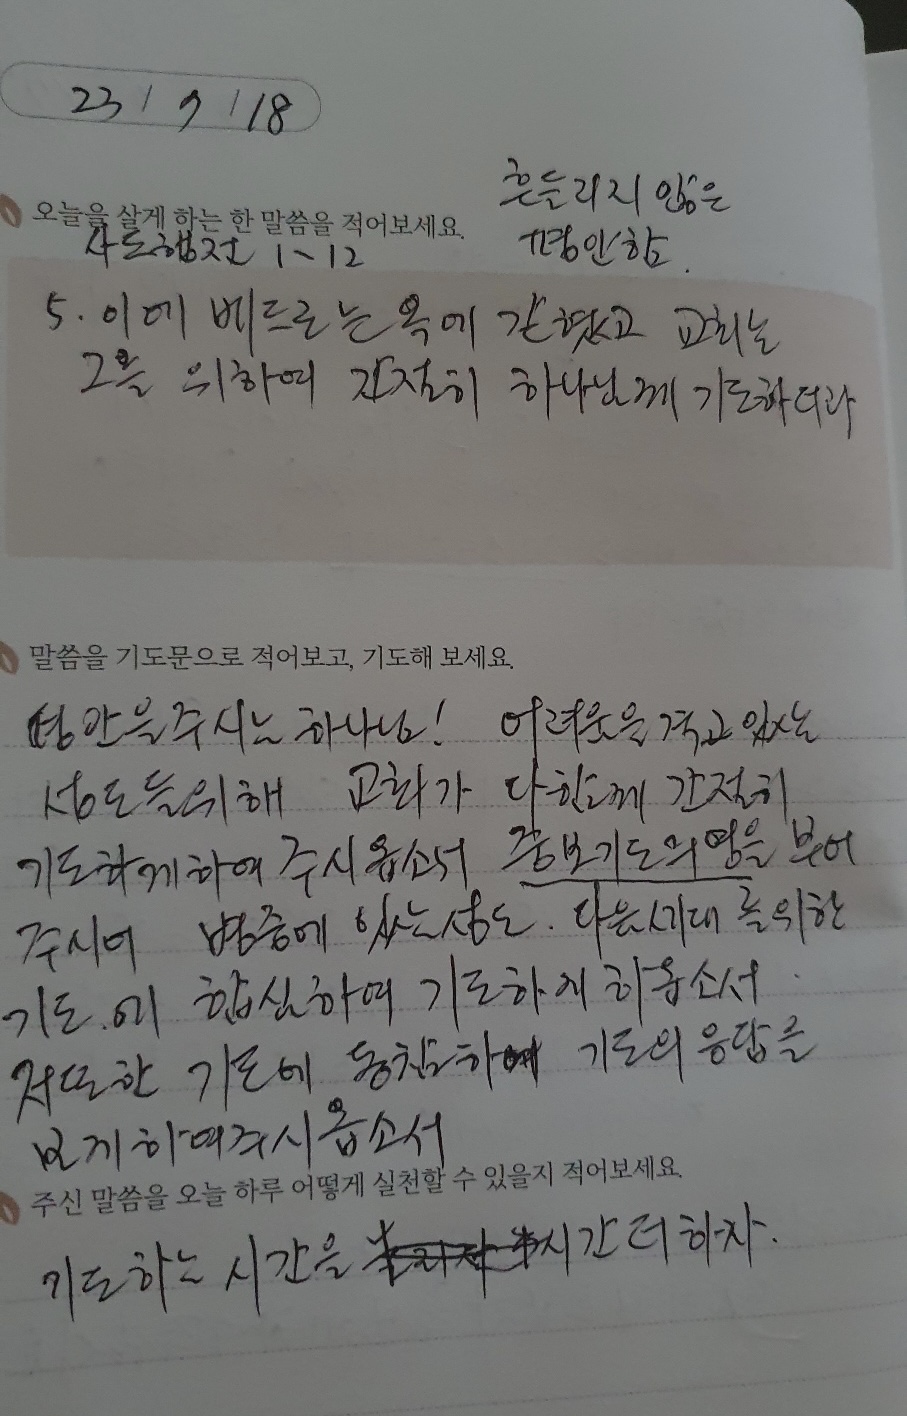 23 / 9 / 18
흔들리지 않은
평안함.
오늘을 살게 하는 한 말씀을 적어보세요.
사도행전 1~12
5. 이에 베드로는 옥에 갇혔고 교회는
그를 위하여 간절히 하나님께 기도하더라
말씀을 기도문으로 적어보고, 기도해 보세요.
평안을주시는 하나님! 어려운을 겪고 있는
성도들위해 교회가 다함께 간절히
기도하게하여 주시옵소서 중보기도의영을 부어
주시어 병중에 있는성도. 다음세대를위한
기도.에 합심하여 기도하게 하옵소서.
저또한 기도에 동참하여 기도의 응답를
보게하여주시옵소서
주신 말씀을 오늘 하루 어떻게 실천할 수 있을지 적어보세요.
기도하는 시간을 시간 더 하자.